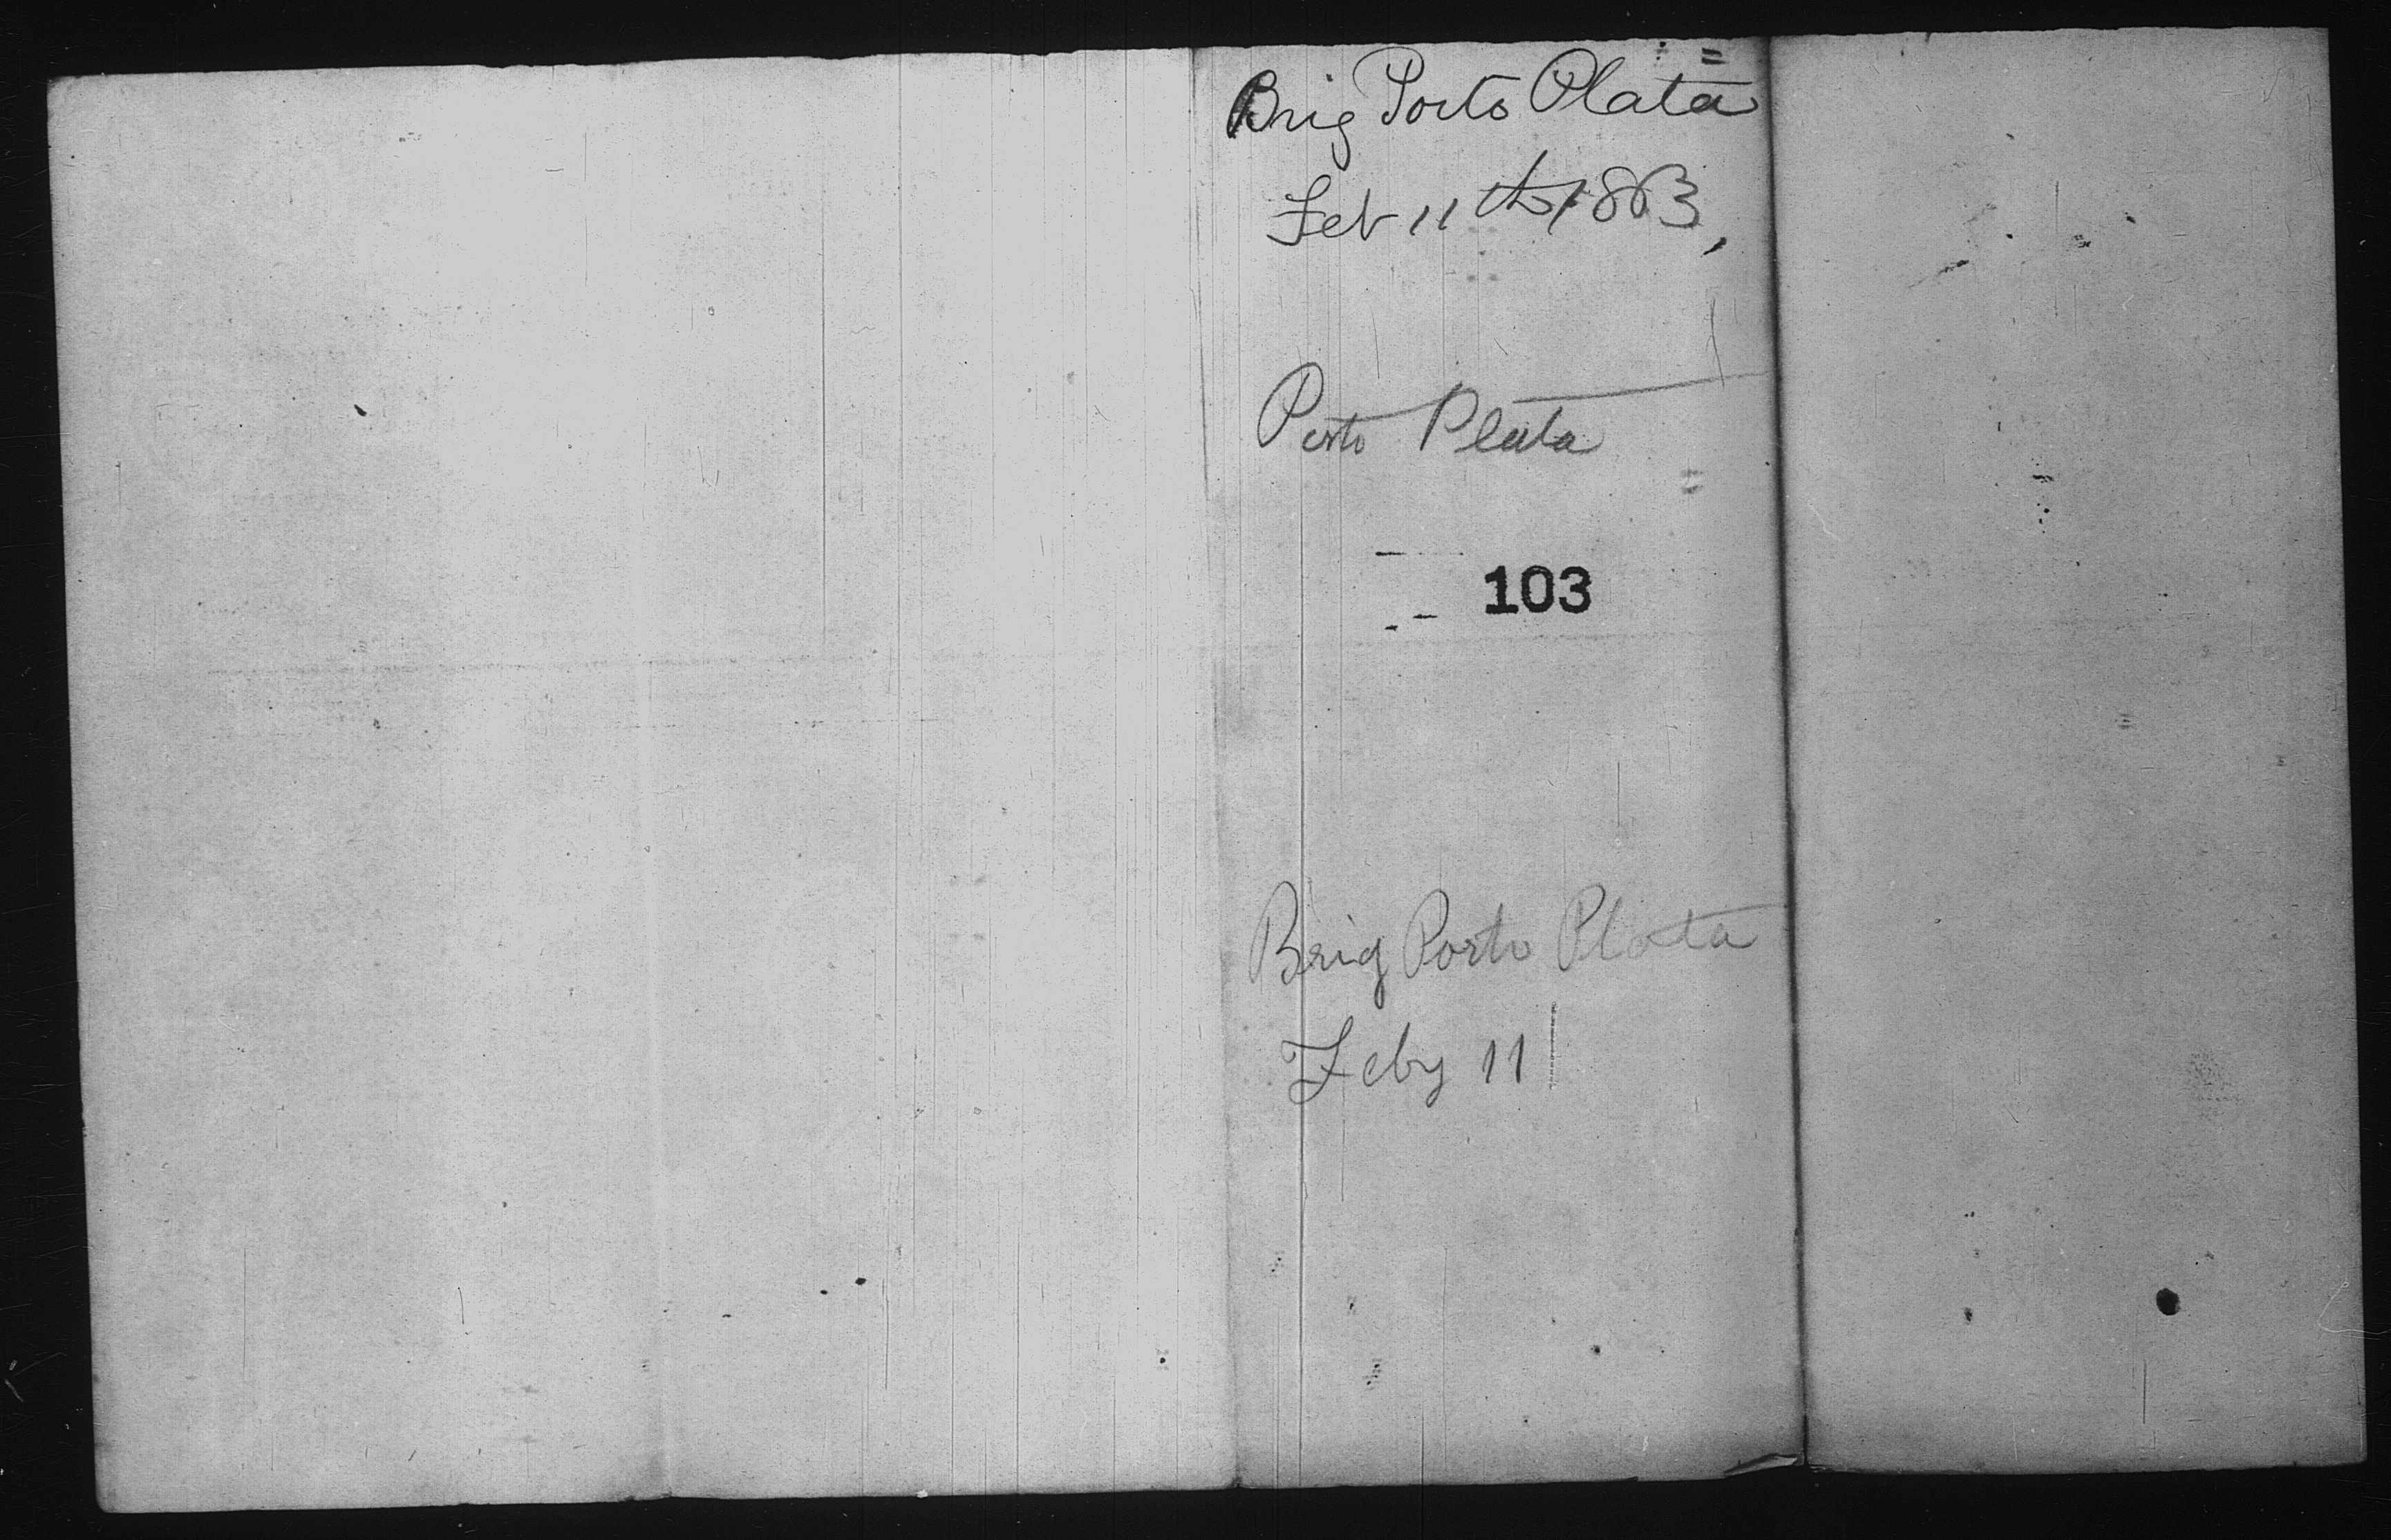 Brig Porto Plata
Feb 11th 1863,
Porto Plata
103
Brig Porto Plata
Feby 11